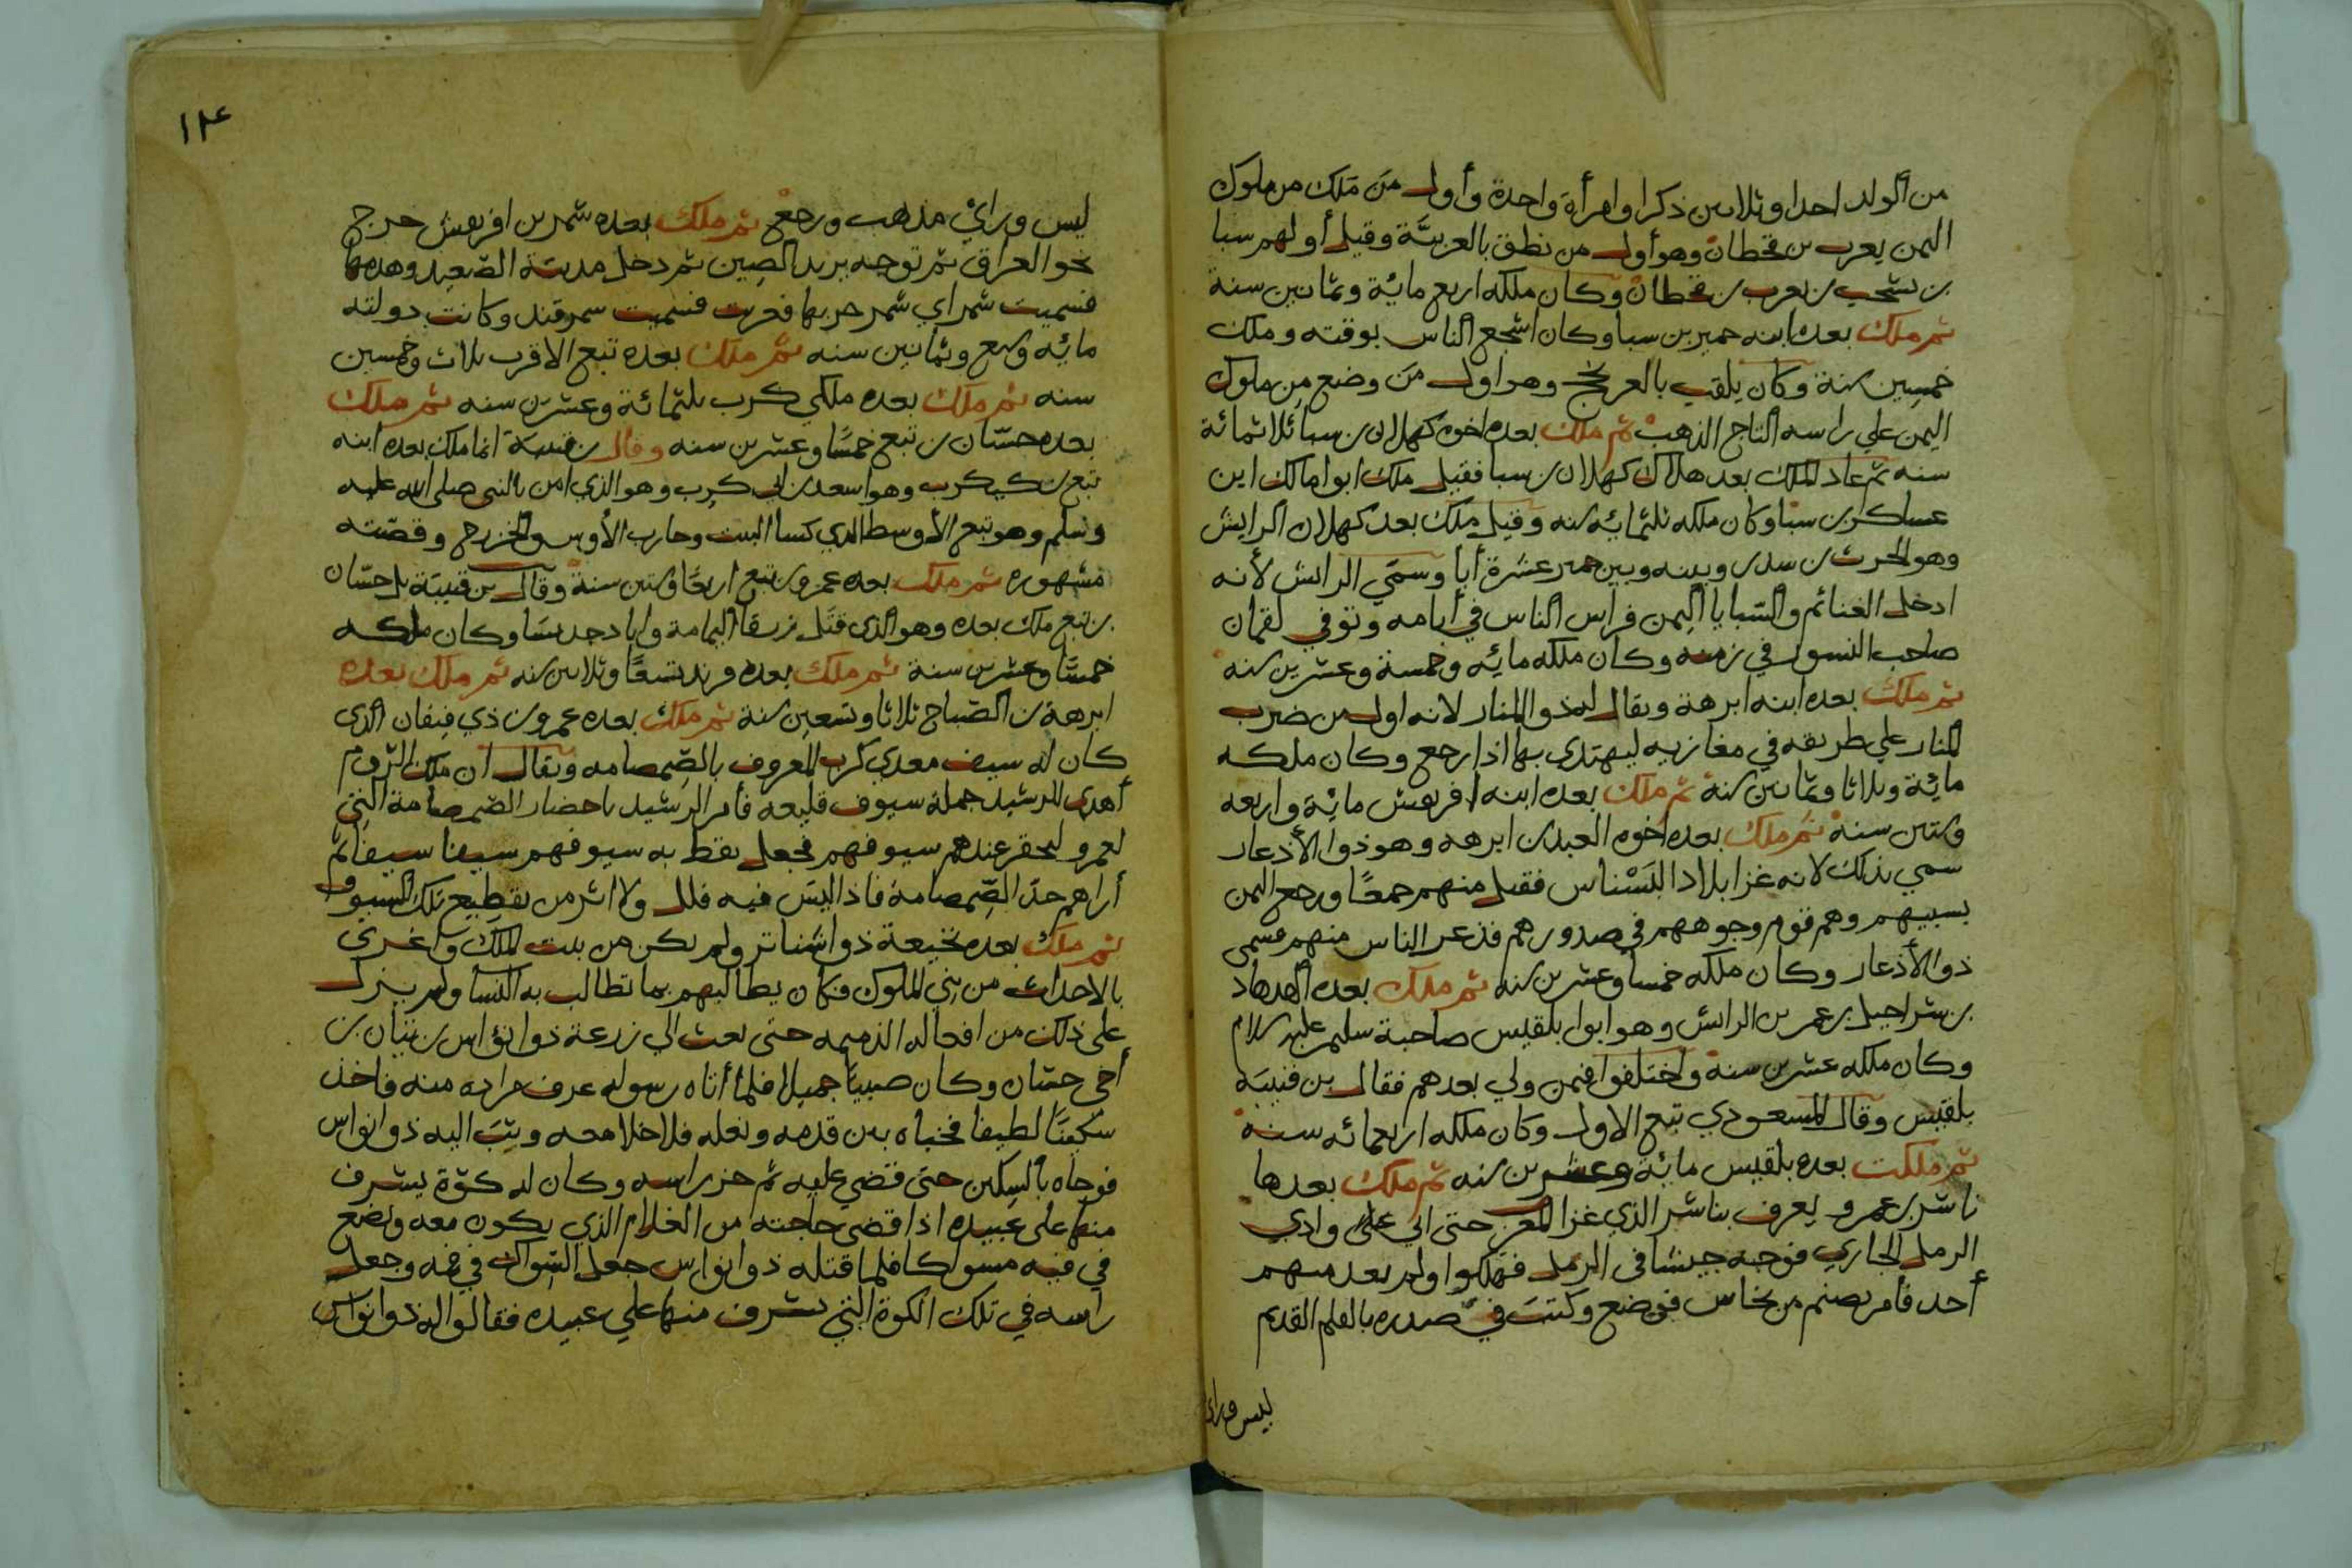 من الولد احدا وثلاثين ذكرا وامرأة واحدة وأول من ملك من ملوك
اليمن يعرب بن قحطان وهو أول من نطق بالعربيَّة وقيل أولهم سبا
بن يشجب بن يعرب بن قحطان وكان ملكه اربع مائة وثمانين سنة
ثم ملك بعده ابنه حمير بن سبا وكان اشجع الناس بوقته وملك
خمسين سنة وكان يلقب بالعرنجج وهو اول من وضع من ملوك
اليمن علي راسه التاج الذهب ثم ملك بعده اخوه كهلان بن سبا ثلاثمائة
سنه ثم عاد الملك بعد هلاك كهلان بن سبا فقيل ملك ابوا مالك ابن
عساكر بن سبا وكان ملكه ثلثمائه سنه وقيل ملك بعد كهلان الرايش
وهو الحرث بن سدد وبينه وبين حمير عشرة أبا وسمّي الرايش لأنه
ادخل الغنائم والسّبايا اليمن فراس الناس في أيامه وتوفي لقمان
صاحب النسور في زمنه وكان ملكه مائه وخمسة وعشرين سنه
ثم ملك بعده ابنه ابرهة ويقال له ذو المنار لانه اول من ضرب
المنار علي طريقه في مغازيه ليهتدي بها اذا رجع وكان ملكه
مائة وثلاثا وثمانين سنة ثم ملك بعده ابنه افريقش مائة واربعه
وستين سنة ثم ملك بعده اخوه العبد بن ابرهه وهو ذوا الأذعار
سمي بذلك لانه غزا بلاد النسناس فقيل منهم جمعًا ورجع اليمن
بسبيهم وهم قوم وجوههم في صدورهم فذعر الناس منهم فسمى
ذو الأذعار وكان ملكه خمسا وعشرين سنه ثم ملك بعده الهدهاد
بن شراحيل بن عمر بن الرايش وهو ابوا بلقيس صاحبة سليمن عليه سلام
وكان ملكه عشرين سنة واختلفوا فيمن ولي بعدهم فقال بن قتيبة
بلقيس وقال المسعودي تبع الاول وكان ملكه اربعمائه سنة
ثم ملكت بعده بلقيس مائة وعشرين سنه ثم ملك بعدها
ناشر بن عمرو يعرف بناشر الذي غزا المغرب حتى اتى على وادي
الرمل الجاري فوجه جيشا في الرمل فهلكوا ولم يعد منهم
أحد فأمر بصنم من نحاس فوضع وكتب في صدره بالقلم القديم
ليس وراي
١٢٤
ليس ورائي مذهب ورجع ثم ملك بعده شمر بن افريقش خرج
نحو العراق ثم توجه يريد الصين ثم دخل مدينة الصّعيد وهدمها
فسميت شمراي شمر خربها فعربت فسميت سمرقند وكانت دولته
مائه وسبع وثمانين سنه ثم ملك بعده تبع الاقرب ثلاث وخمسين
سنه ثم ملك بعده ملكي كرب ثلثمائة وعشرين سنه ثم ملك
بعده حسّان بن تبع خمسًا وعشرين سنه وقال بن قتيبة انما ملك بعده ابنه
تبع بن كليكرب وهو اسعد بن ابي كرب وهو الذي امن بالنبي صلى الله عليه
وسلم وهو تبع الأوسط الذي كسا البيت وحارب الأوس والخزرج وقصّته
مشهوره ثم ملك بعده عمرو بن تبع اربعًا وستين سنة وقال بن قتيبة بل حسّان
بن تبع ملك بعده وهو الذى قتل زرقا اليمامة واباد جديسًا وكان ملكه
خمسًا وعشرين سنة ثم ملك بعده مرثد تسعًا وثلاثين سنه ثم ملك بعده
ابرهة بن الصّباح ثلاثا وتسعين سنة ثم ملك بعده عمرو بن ذي فيفان الذى
كان له سيف معدي كرب المعروف بالصّمصامه ويقال ان ملك الرّوم
أهدى للرشيد جملة سيوف قليعه فأمر الرشيد باحضار الصّمصامة التي
لعمرو ليحقر عندهم سيوفهم فجعل يقط به سيوفهم سيفا سيفا ثم
أراهم حدّ الصّمصامة فاذا ليس فيه فلل ولا اثر من تقطيع تلك السيوف
ثم ملك بعده لخيعة ذوا شناتر ولم يكن من بيت الملك واغري
بالاحداث من بني الملوك فكان يطالبهم بما تطالب به النسا ولم يزل
على ذلك من افعاله الذميمه حتى بعث الي زرعة ذوا نؤاس بن تبان بن
أخى حسّان وكان صبيًا جميلا فلما أتاه رسوله عرف مراده منه فاخذ
سكينًا لطيفا فخباه بين قدمه ونعله فلا خلا معه وثبَ اليه ذوا نواس
فوجاه بالسكين حتى قضي عليه ثم حز راسه وكان له كوّة يشرف
منها على عبيده اذا قضى حاجته من الغلام الذي يكون معه وضع
في فيه مسواكا فلما قتله ذوا نواس جعل السّواك في فيه وجعل
راسه في تلك الكوة التي يشرف منها علي عبيده فقالوا له ذوا نواس